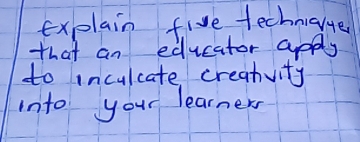 Explain five techniques
that an educator apply
to inculcate creativity
into your learners